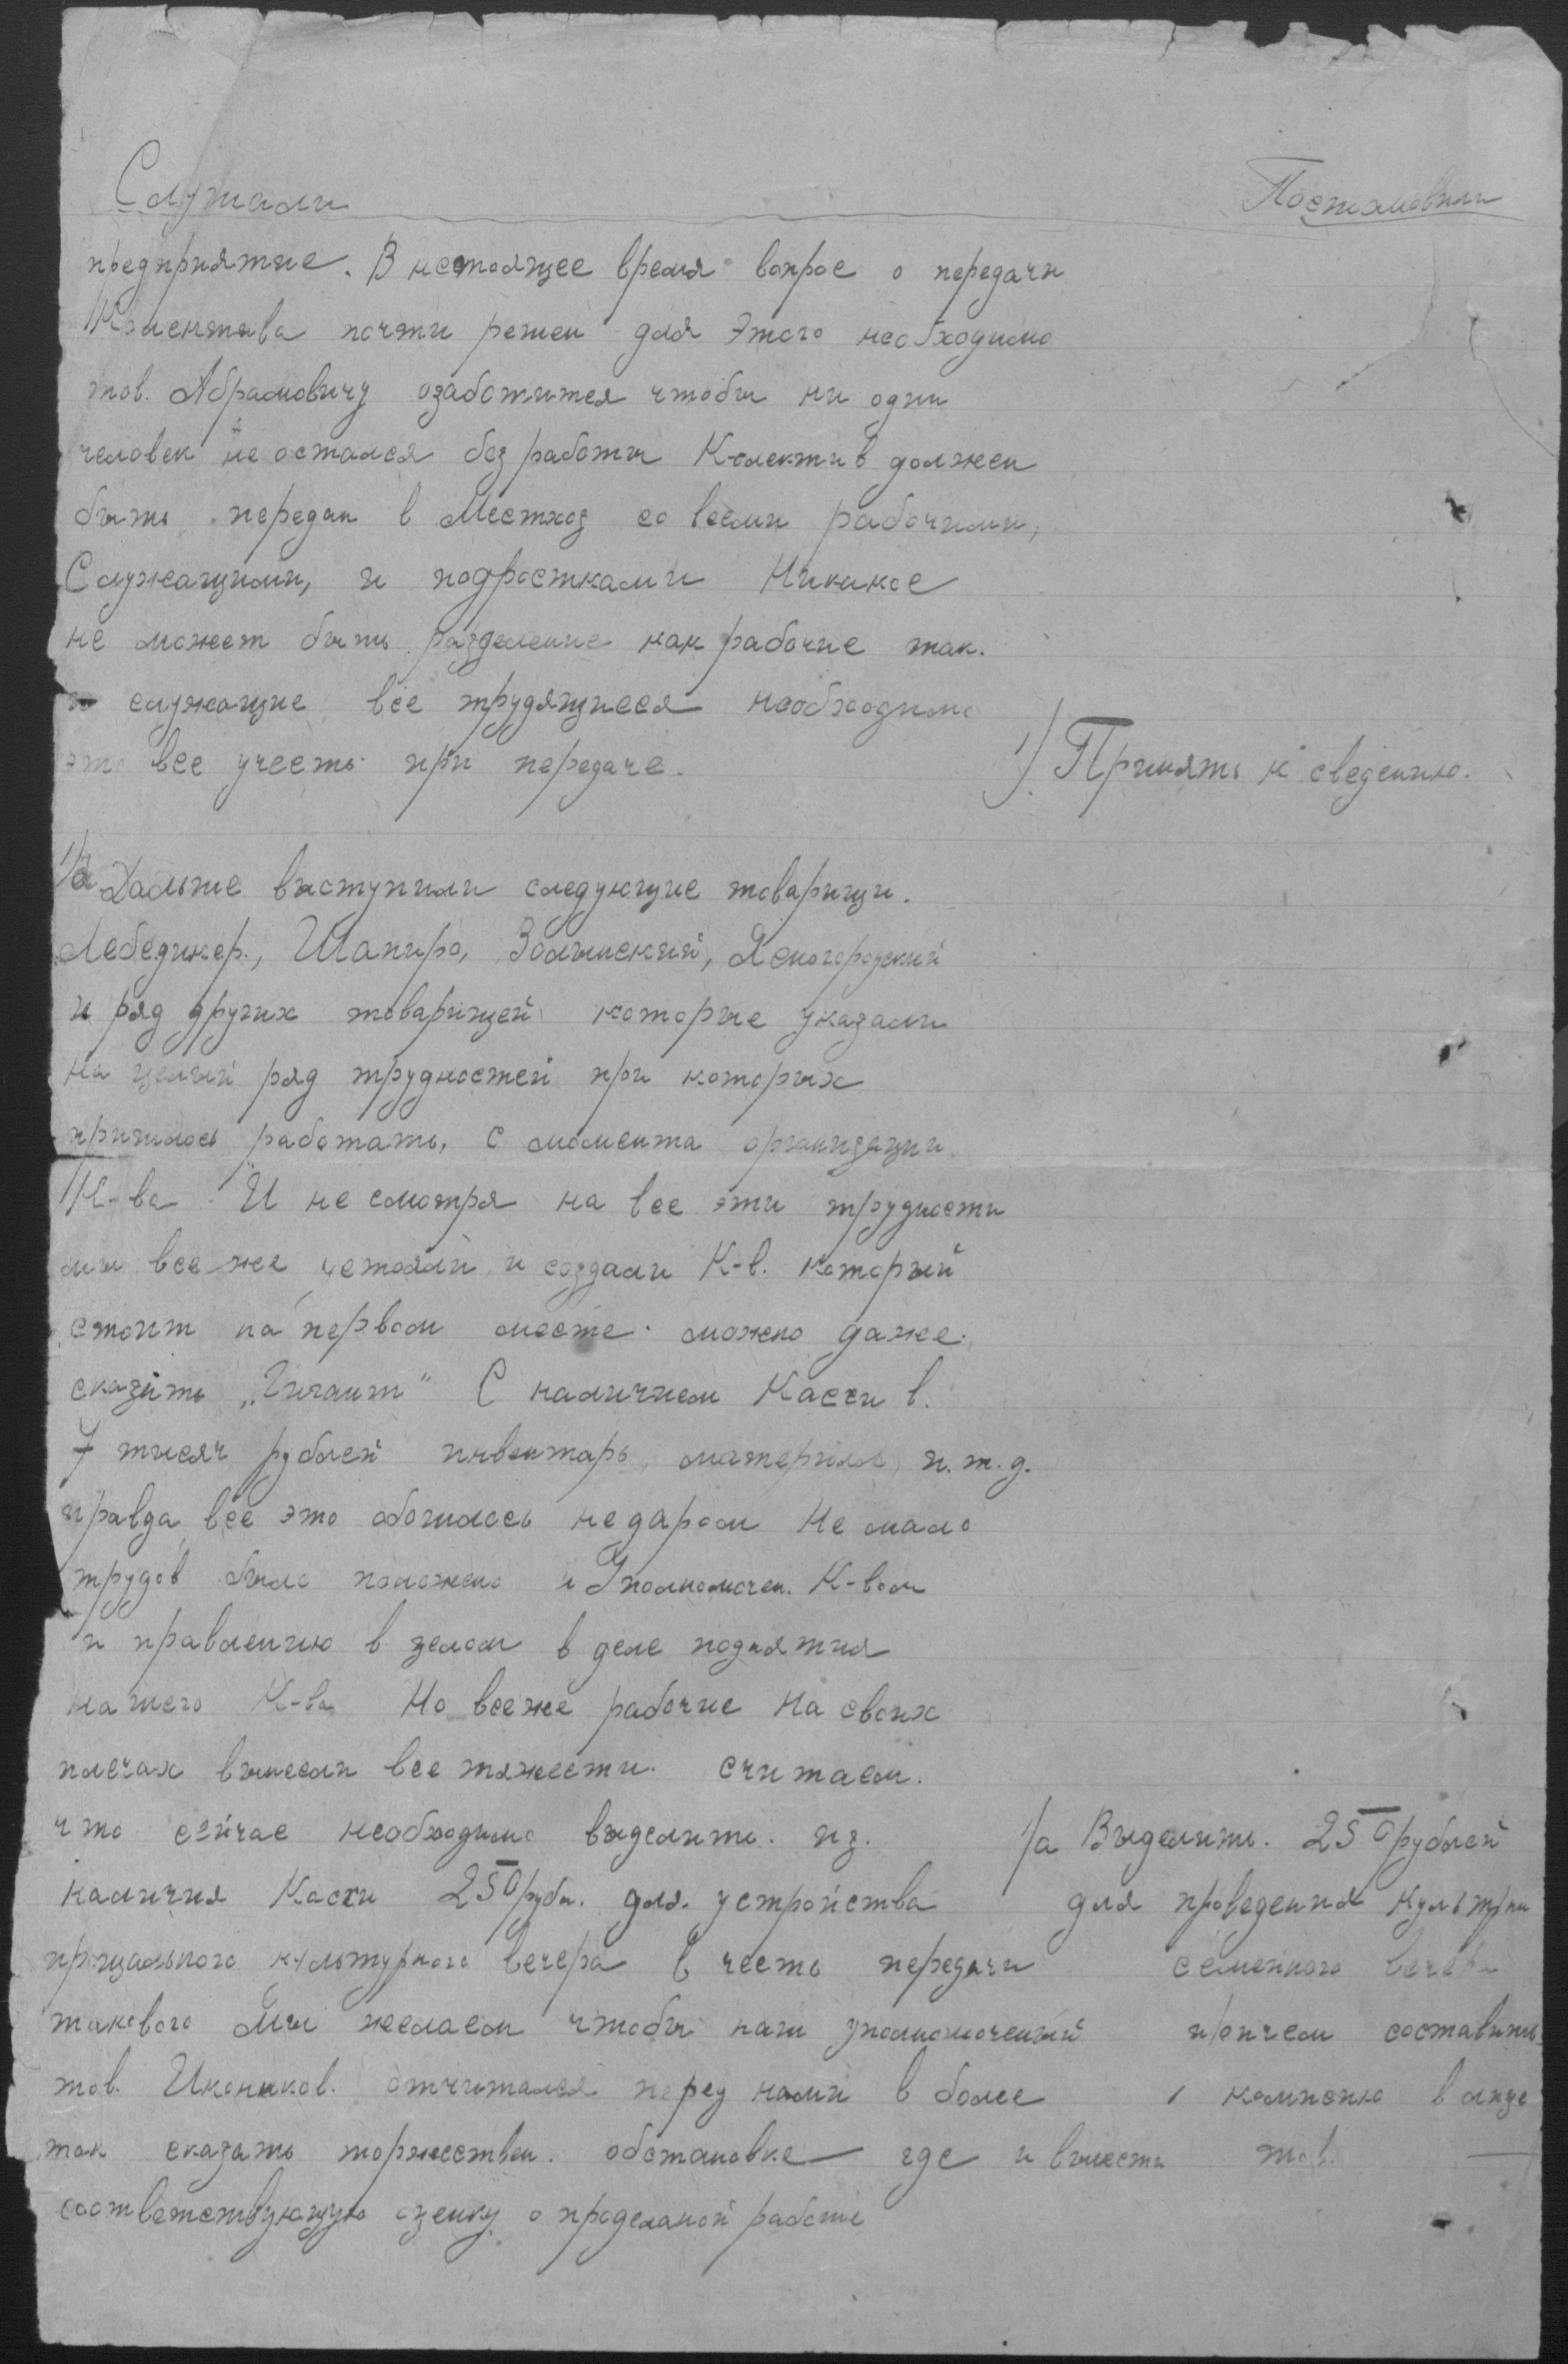 Слушали
Постановили
предприятие. В настоящее время вопрос о передачи
Колектива почти решен для этого необходимо
тов. Абрамовичу озаботится чтобы ни один
человек не остался без работы Колектив должен
быть передан в Местхоз со всеми рабочими,
Служащими, и подростками Никакое
не может быть разделение как рабочие так.
и служащие все трудящиеся необходимо
это все учесть при передаче.
1/ Принять к сведению.
1/а Дальше выступили следующие товарищи.
Лебединер., Шапиро, Волынский, Ясногородский
и ряд других товарищей которые указали
на целый ряд трудностей при которых
пришлось работать, с момента организации
К-ва И не смотря на все эти трудности
мы все же устояли и создали К-в. который
стоит на первом месте. можно даже.
сказать „Гигант" С наличием Кассы в.
7 тысяч рублей инвентарь, материял, и.т.д.
правда все это обошлось не даром Не мало
трудов было положено и Уполномочен. К-вом
и правлению в целом в деле поднятия
нашего К-ва Но всеже рабочие на своих
плечах вынесли все тяжести. считаем.
что сейчас необходимо выделить. из.
наличия Кассы 250 рубл. для. устройства
прщального культурного вечера в честь передачи
такового Мы желаем чтобы наш уполномоченый
тов. Иконников. отчитался перед нами в более
так сказать торжествен. обстановке где и вынести
соответствующую оценку о проделаной работе
1/а Выделить. 250 рублей
для проведения культурн
семейного вечера
причем составить
комисию в лице
тов.